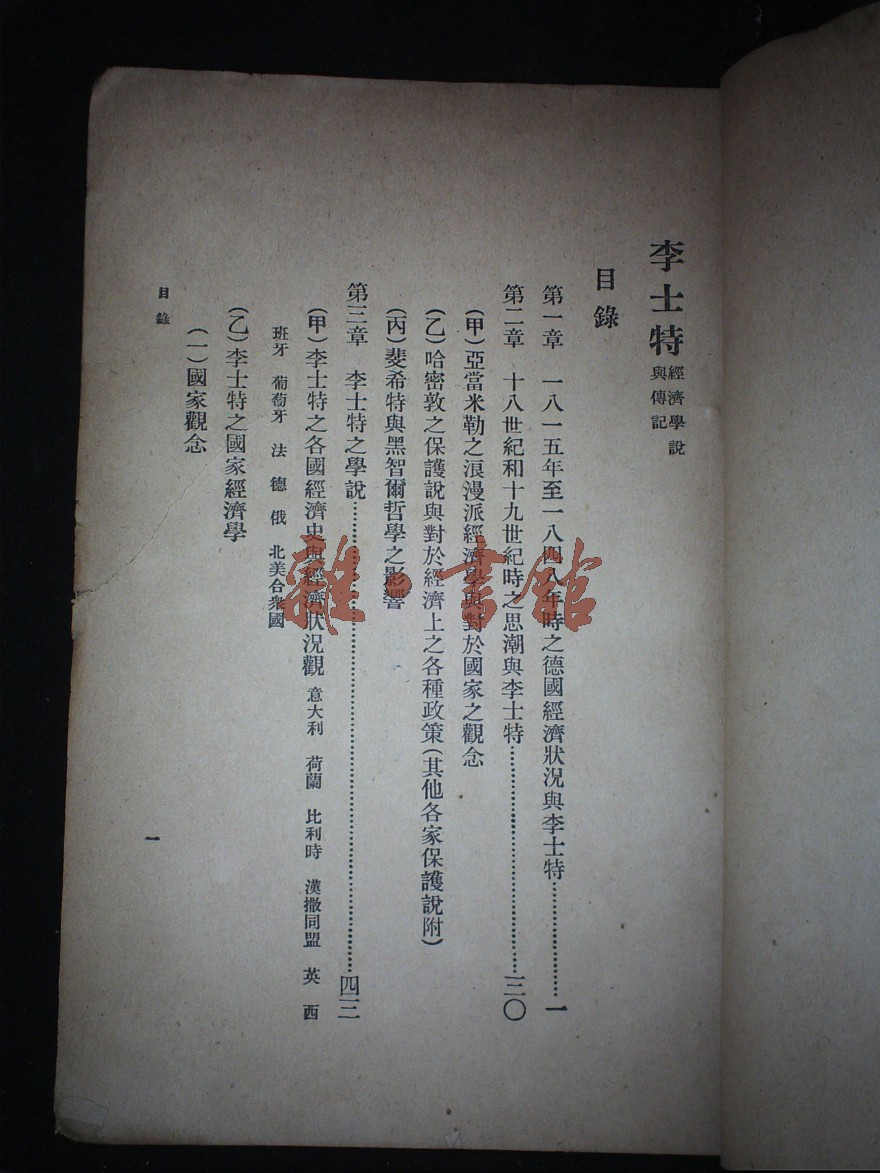 李士特經濟學說
與傳記
目錄
第一章 一八一五年至一八四八年時之德國經濟狀況與李士特……一
第二章 十八世紀和十九世紀時之思潮與李士特……三〇
(甲)亞當米勒之浪漫派經濟學與對於國家之觀念
(乙)哈密敦之保護說與對於經濟上之各種政策(其他各家保護說附)
(丙)斐希特與黑智爾哲學之影響
第三章 李士特之學說……四三
(甲)李士特之各國經濟史與經濟狀況觀 意大利 荷蘭 比利時 漢撒同盟 英 西
班牙 葡萄牙 法 德 俄 北美合衆國
(乙)李士特之國家經濟學
(一)國家觀念
目錄
一
雜·書館